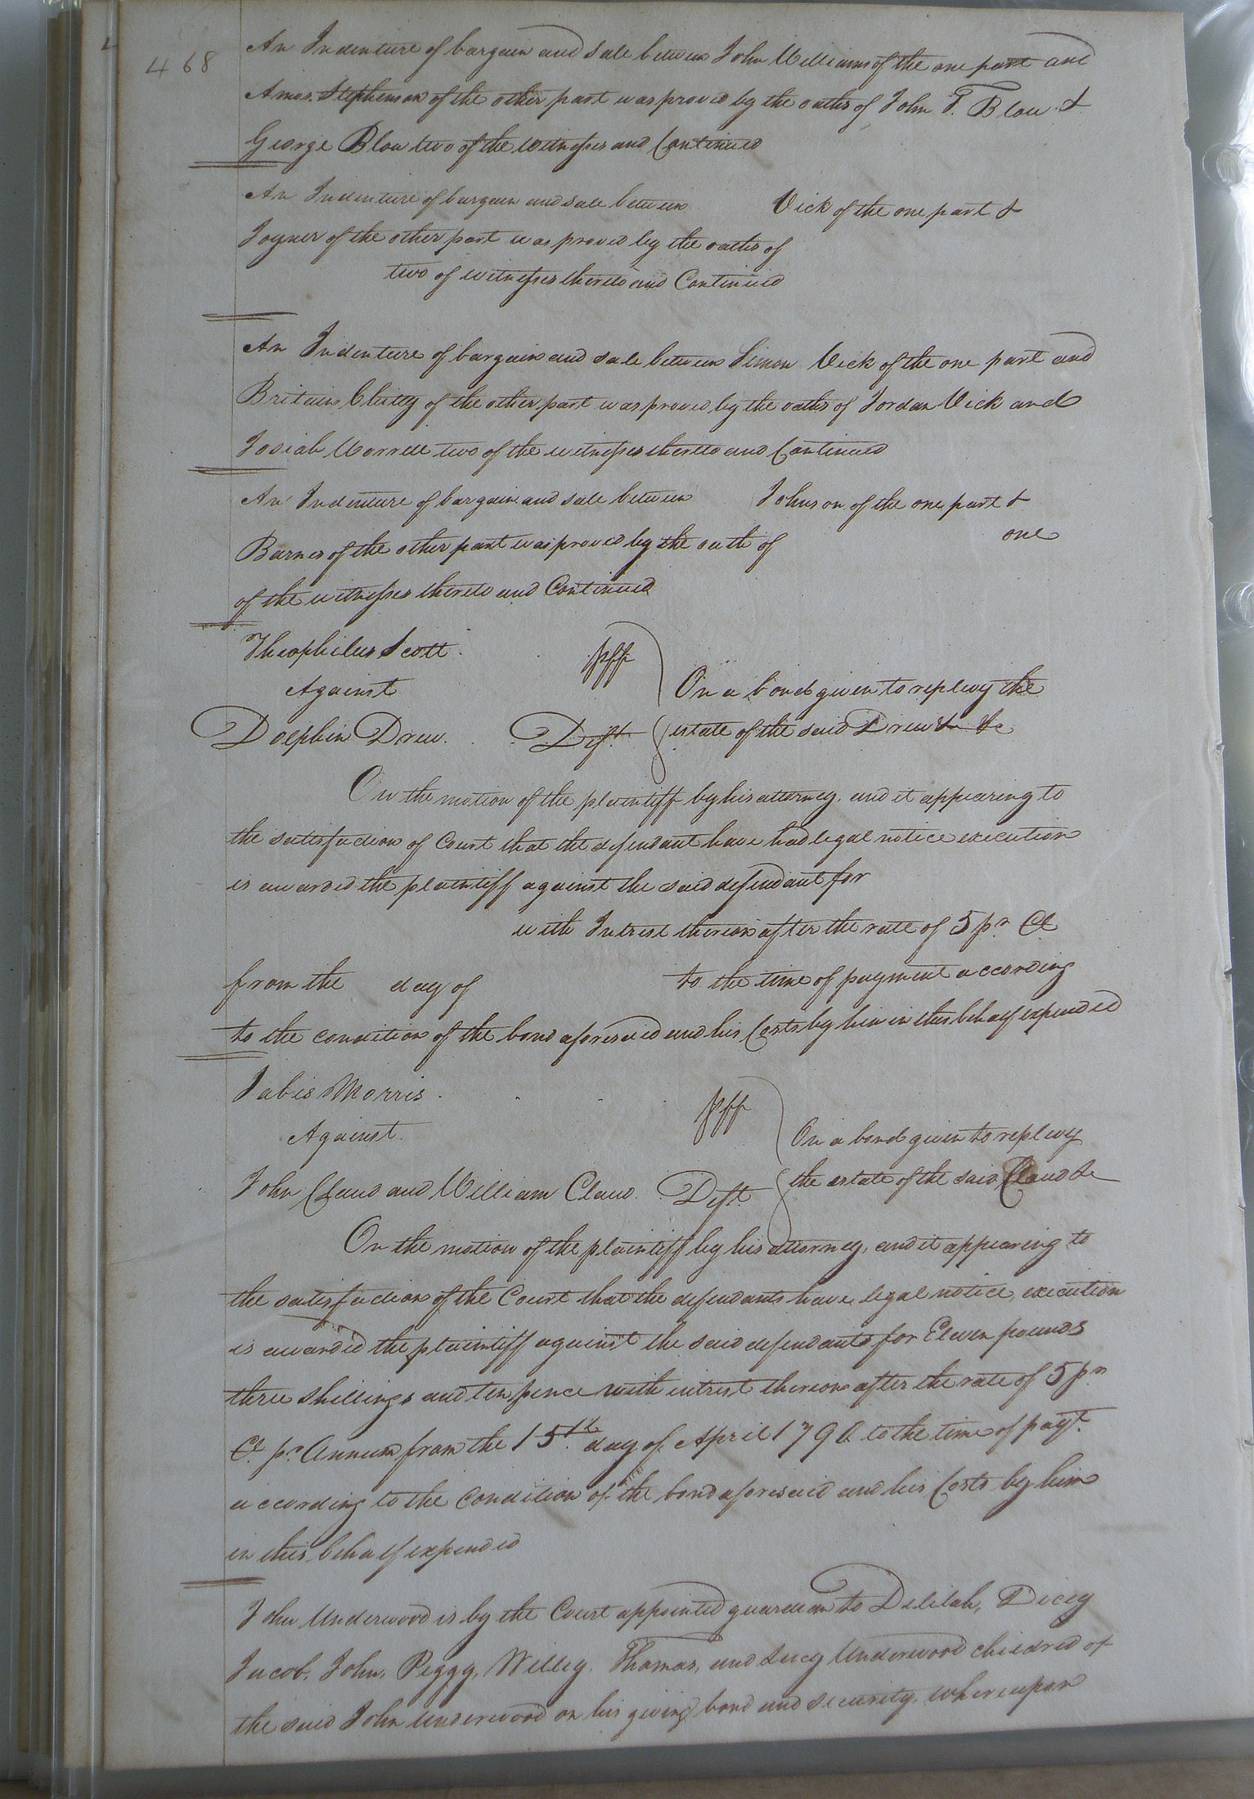 468
An Indenture of bargain and Sale between John Williams of the one part and
Amos Stephenson of the other part was proved by the oaths of John T. Blow &
George Blow two of the witnesses and Continued
An Indenture of bargain and sale between Vick of the one part &
Joyner of the other part was proved by the oaths of
two of witnesses thereto and Continued
An Indenture of bargain and sale between Simon Vick of the one part and
Britain of the other part was proved by the oaths of Jordan Vick and
Josiah Worrell two of the witnesses thereto and Continued
An Indenture of bargain and sale between Johnson of the one part &
Barnes of the other part was proved by the oath of one
of the witnesses thereto and Continued
Theophilus Scott plff
Against
On a bond given to replevy the
Dolphin Drew Deft estate of the said Drew & &c
On the motion of the plaintiff by his attorney, and it appearing to
the satisfaction of Court that the defendant have had legal notice execution
is awarded the plaintiff against the said defendant for
with Intrest thereon after the rate of 5 pr Ct
from the day of to the time of payment according
to the condition of the bond aforesaid and his Costs by him in this behalf expended
Jabis Morris plff
Against
On a bond given to replevy
John Claud and William Claud Deft the estate of the said Claud &c
On the motion of the plaintiff by his attorney, and it appearing to
the satisfaction of the Court that the defendants have legal notice, execution
is awarded the plaintiff against the said defendants for Eleven pounds
three Shillings and ten pence with intrest thereon after the rate of 5 pr
Ct pr Annum from the 15th day of April 1796 to the time of payt
according to the Condition of the bond aforesaid and his Costs by him
in this behalf expended
John Underwood is by the Court appointed guardian to Delilah, Dicey
Jacob, John, Peggy, Willey, Thomas, and Lucy Underwood children of
the said John Underwood on his giving bond and security. whereupon